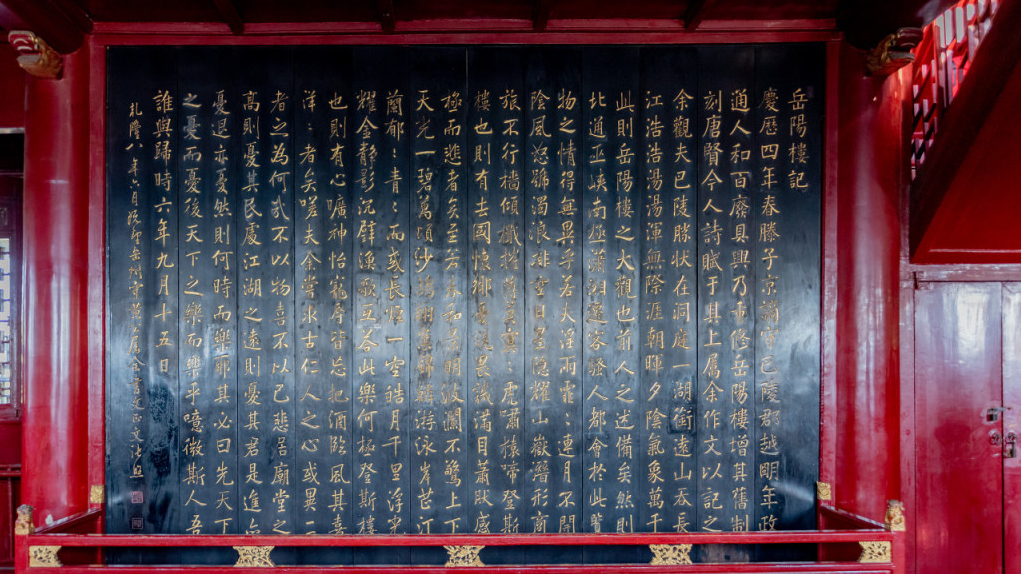 岳陽樓記
慶歷四年春滕子京謫守巴陵郡越明年政
通人和百廢具興乃重修岳陽樓增其舊制
刻唐賢今人詩賦于其上屬余作文以記之
余觀夫巴陵勝狀在洞庭一湖銜遠山吞長
江浩浩湯湯渾無際涯朝暉夕陰氣象萬千
此則岳陽樓之大觀也前人之述備矣然則
北通巫峽南極瀟湘遷客騷人都會於此覽
物之情得無異乎若夫淫雨霏:連月不開
陰風怒號濁浪排空日星隱耀山嶽潛形商
旅不行檣傾檝摧薄暮冥:虎嘯猿啼登斯
樓也則有去國懷鄉憂讒畏譏滿目蕭然感
極而悲者矣至若春和景明波瀾不驚上下
天光一碧萬頃沙鷗翔集錦鱗游泳岸芷汀
蘭郁:青:而或長煙一空皓月千里浮光
耀金靜影沉璧漁歌互答此樂何極登斯樓
也則有心曠神怡寵辱皆忘把酒臨風其喜
洋:者矣嗟夫余嘗求古仁人之心或異二
者之為何哉不以物喜不以己悲居廟堂之
高則憂其民處江湖之遠則憂其君是進亦
憂退亦憂然則何時而樂耶其必曰先天下
之憂而憂後天下之樂而樂乎噫微斯人吾
誰與歸時六年九月十五日
乾隆八年六月既望岳州守黃屬余書張照